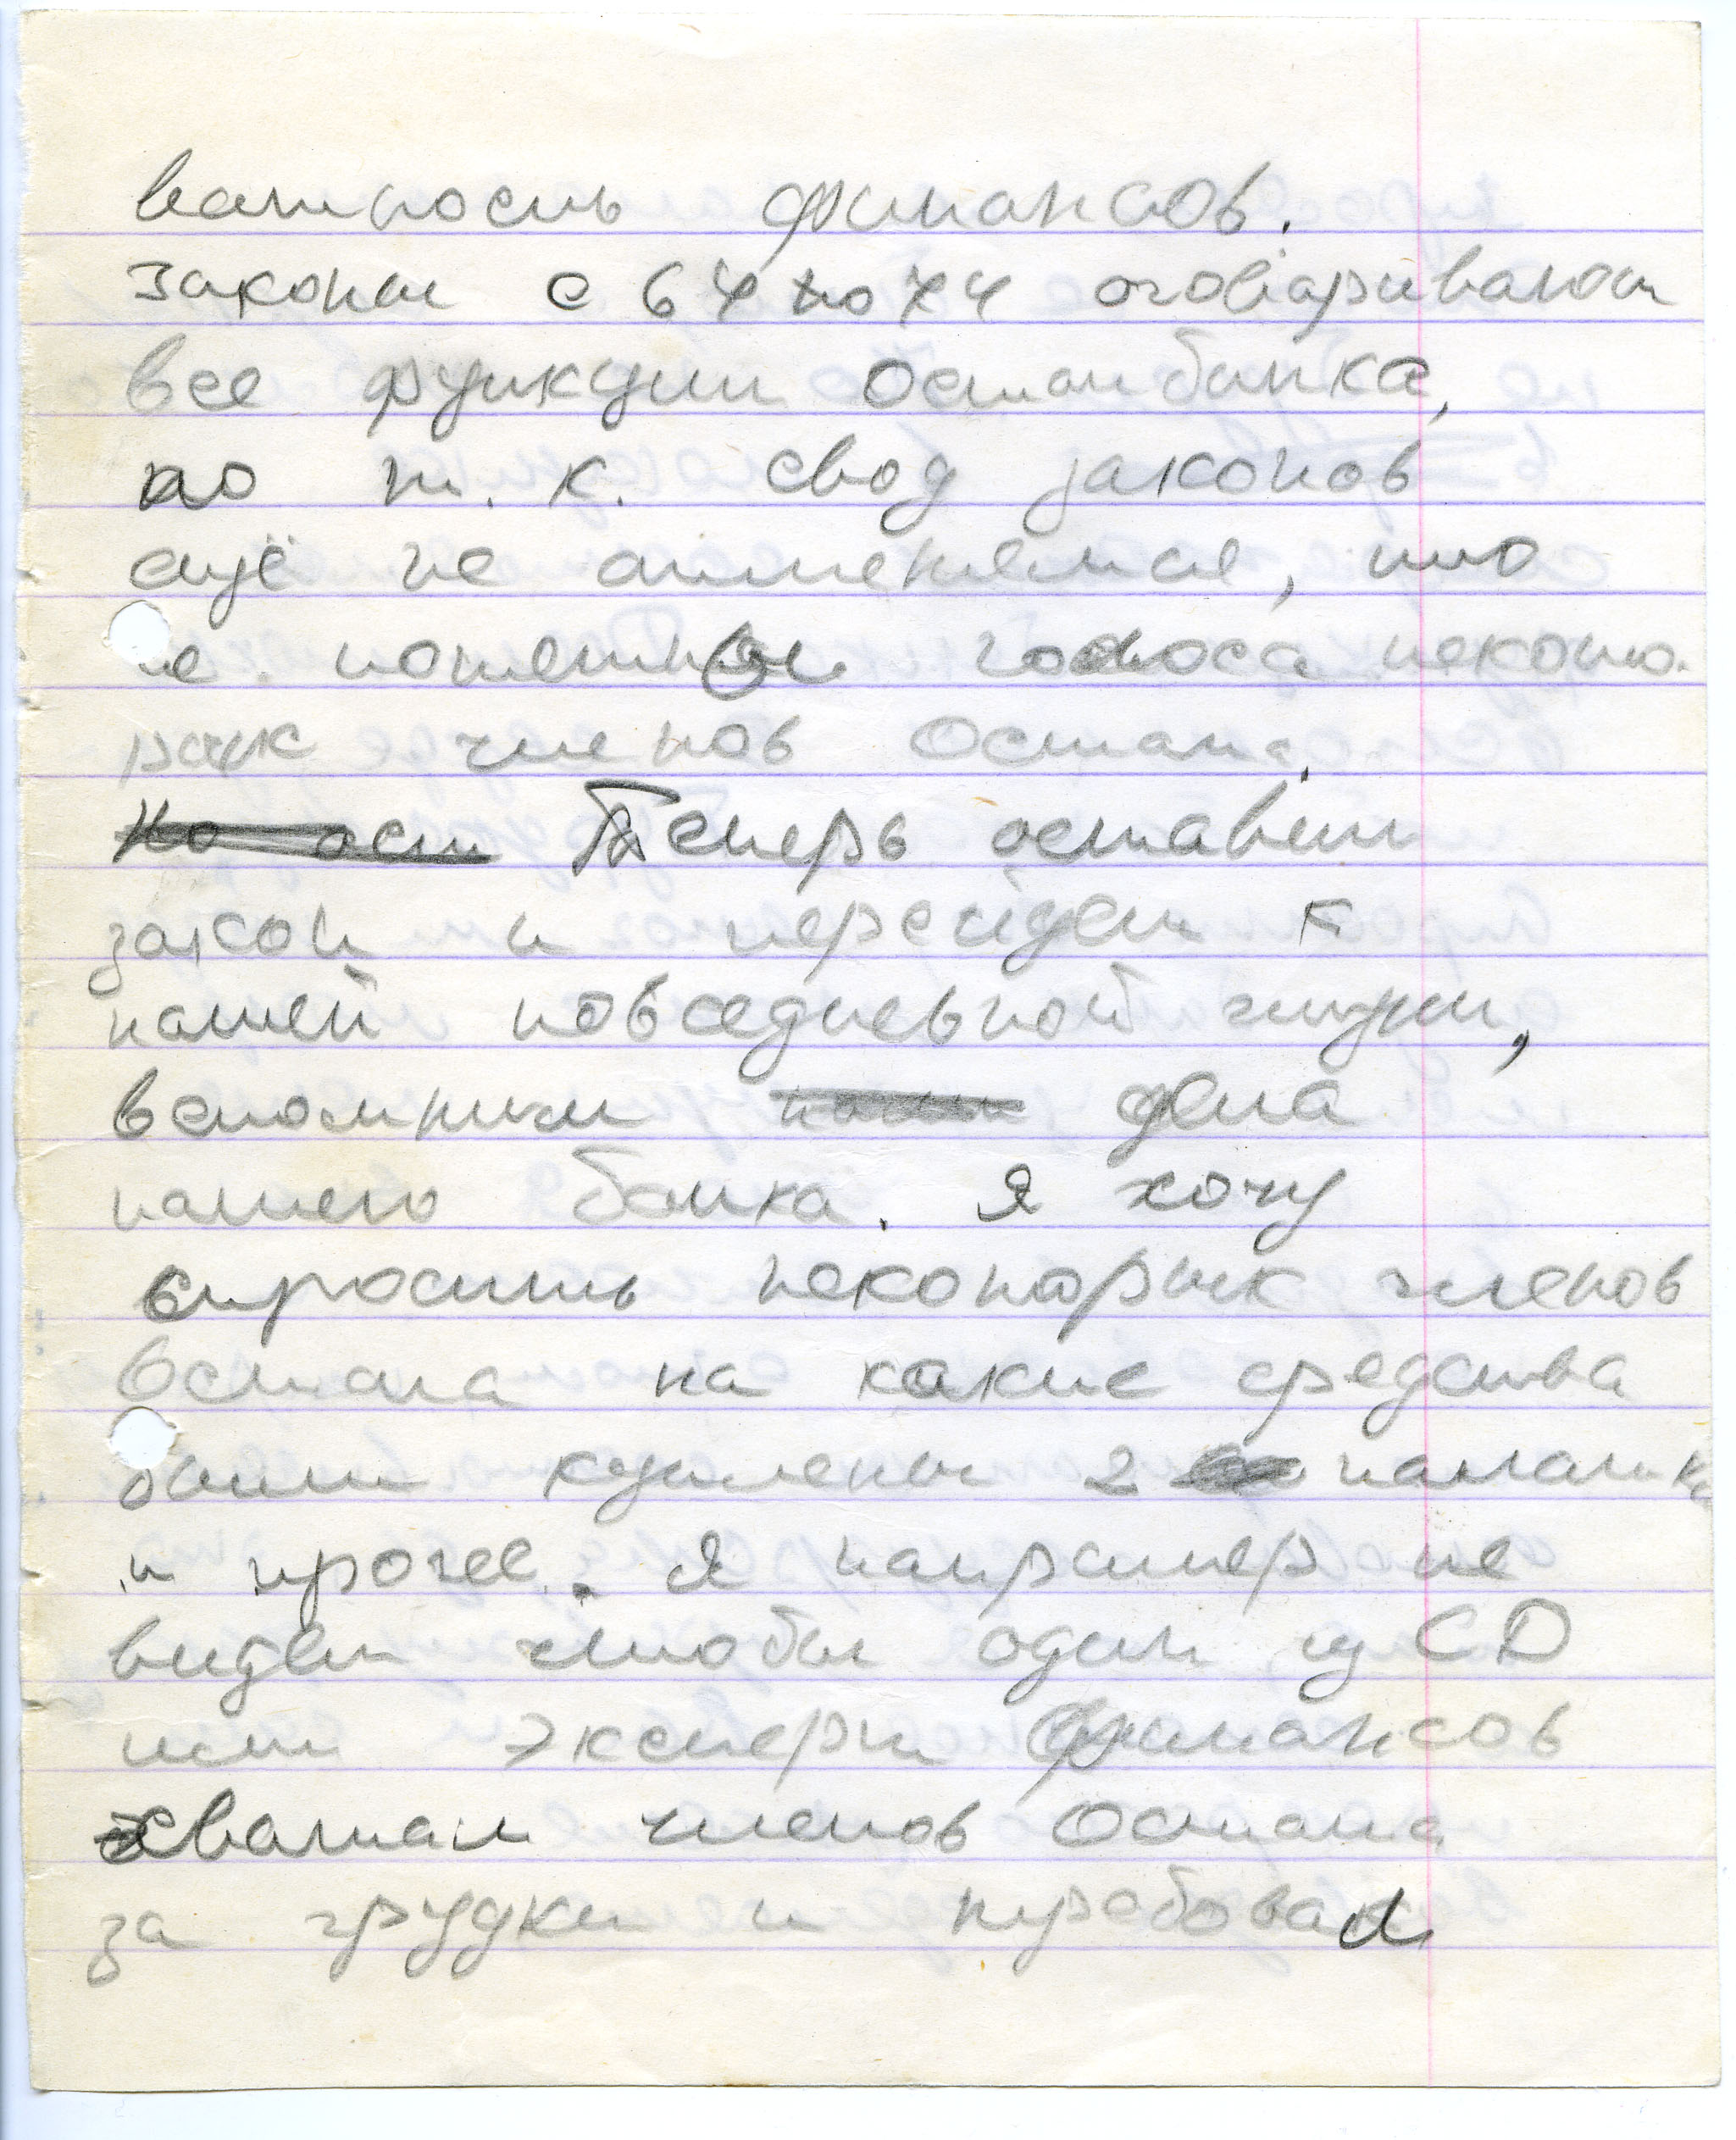 важность финансов.
Законы с 64 по 74 оговаривают
все функции Остапбанка,
но т. к. свод законов
ещё не отменяется, то
не понятны голоса некото-
рых членов Остапа.
Теперь оставим
закон и перейдём к
нашей повседневной жизни,
вспомним дела
нашего банка. Я хочу
спросить некоторых членов
Остапа на какие средства
были куплены 2 палатки
и прочее. Я например не
видел чтобы один из СD
или эксперт финансов
хватал членов Остапа
за грудки и требовал